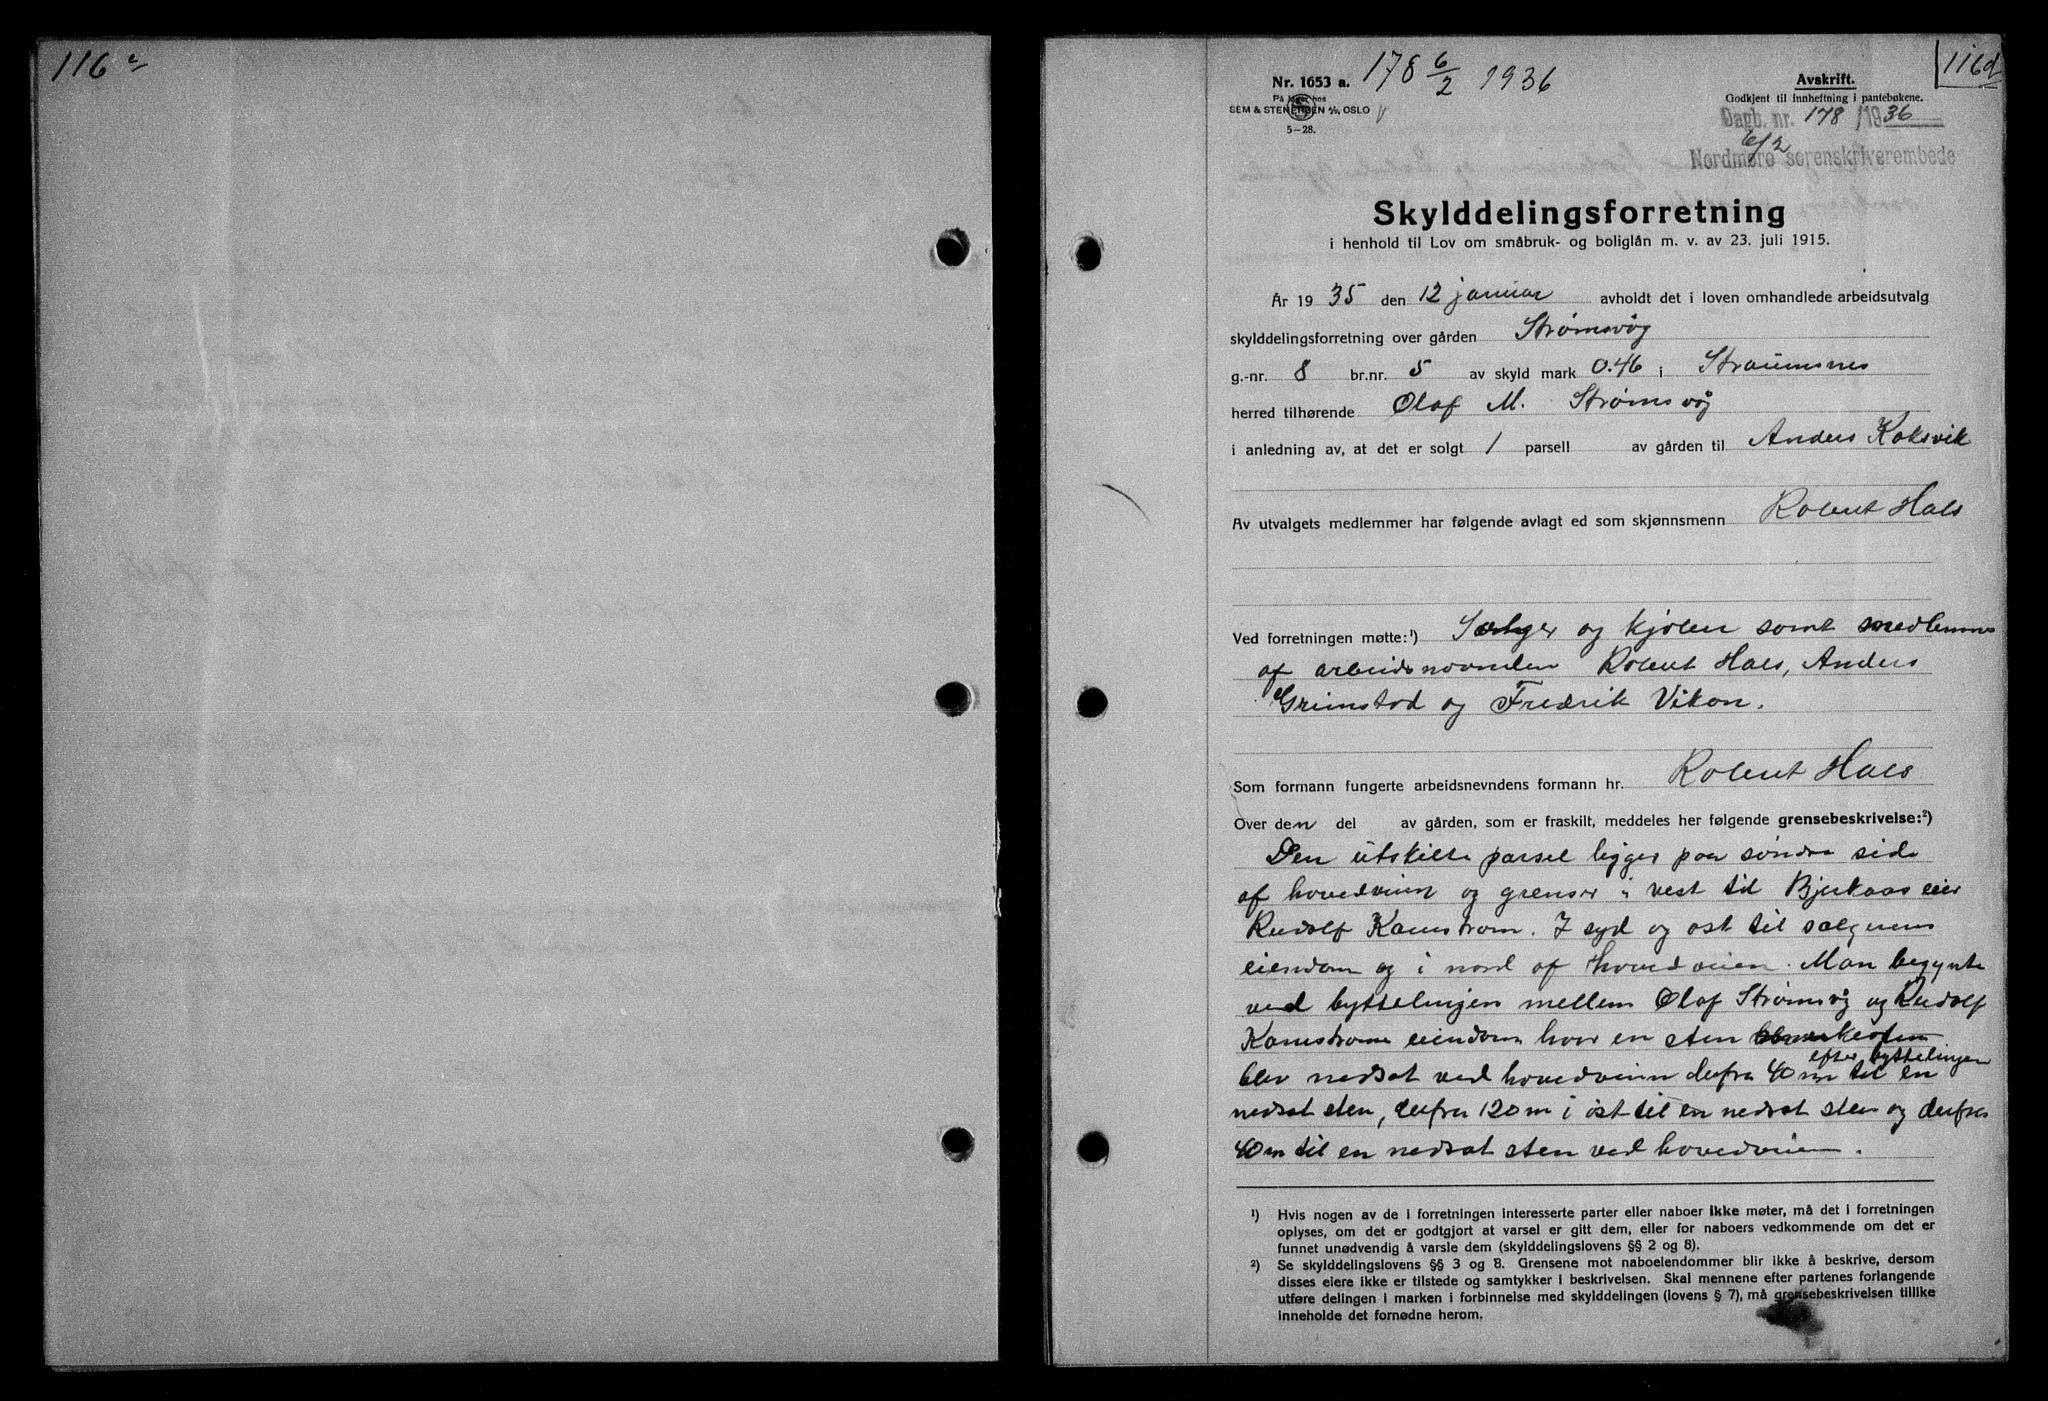 116
178 6/2 1936
116d
Nr. 1653 a.
På lager hos
SEM & STENERSEN A/S, OSLO
5-28.
Avskrift.
Godkjent til innheftning i pantebøkene.
Dagb. nr. 178/1936
6/2
Nordmøre sorenskriverembede
Skylddelingsforretning
i henhold til Lov om småbruk- og boliglån m. v. av 23. juli 1915.
År 1935 den 12 januar avholdt det i loven omhandlede arbeidsutvalg
skylddelingsforretning over gården Strømsvåg
g.-nr. 8 br.nr. 5 av skyld mark 0.46 i Straumsnes
herred tilhørende Olaf M. Strømsvåg
i anledning av, at det er solgt 1 parsell av gården til Anders Koksvik
Av utvalgets medlemmer har følgende avlagt ed som skjønnsmenn Robert Hals
Ved forretningen møtte:¹) Sælger og kjøber samt medlemmer
af arbeidsnevnden Robert Hals, Anders
Grimstad og Fredrik Vikan.
Som formann fungerte arbeidsnevndens formann hr. Robert Hals
Over den del av gården, som er fraskilt, meddeles her følgende grensebeskrivelse:²)
Den utskilte parsel ligger paa søndre side
af hovedveien og grenser i vest til Bjerkaas eier
Rudolf Kamstrøm. I syd og øst til sælgerens
eiendom og i nord af hovedveien. Man begynte
ved byttelingjen mellem Olaf Strømsvåg og Rudolf
Kamstrøms eiendom hvor en sten
efter byttelingjen
blev nedsat ved hovedveien derfra 40 m til en
nedsat sten, derfra 120 m i øst til en nedsat sten og derfra
40 m til en nedsat sten ved hovedveien.
¹) Hvis nogen av de i forretningen interesserte parter eller naboer ikke møter, må det i forretningen
oplyses, om det er godtgjort at varsel er gitt dem, eller for naboers vedkommende om det er
funnet unødvendig å varsle dem (skylddelingslovens §§ 2 og 8).
²) Se skylddelingslovens §§ 3 og 8. Grensene mot naboeiendommer blir ikke å beskrive, dersom
disses eiere ikke er tilstede og samtykker i beskrivelsen. Skal mennene efter partenes forlangende
utføre delingen i marken i forbinnelse med skylddelingen (lovens § 7), må grensebeskrivelsen tillike
inneholde det fornødne herom.